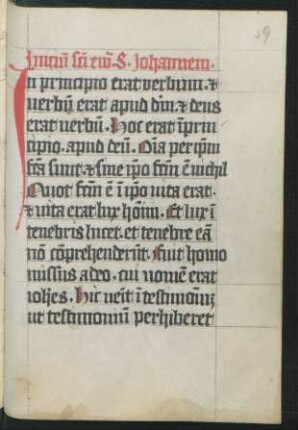 59
Iniciũ scĩ ewã. S. Johannem.
In principio erat verbum. &
verbũ erat apud dm̃. & deus
erat verbũ. Hoc erat ĩ prin
cipio. apud deũ. Oĩa per ip̃m
fc̃a sunt. & sine ip̃o fc̃m ẽ nichil
Quot fc̃m ẽ ĩ ip̃o vita erat.
& vita erat lux hoĩm. Et lux ĩ
tenebris lucet. et tenebre eã
nõ cõprehenderũt. Fuit homo
missus a deo. cui nomẽ erat
ioh̃es. Hic venit ĩ testimoniũ
ut testimoniũ perhiberet